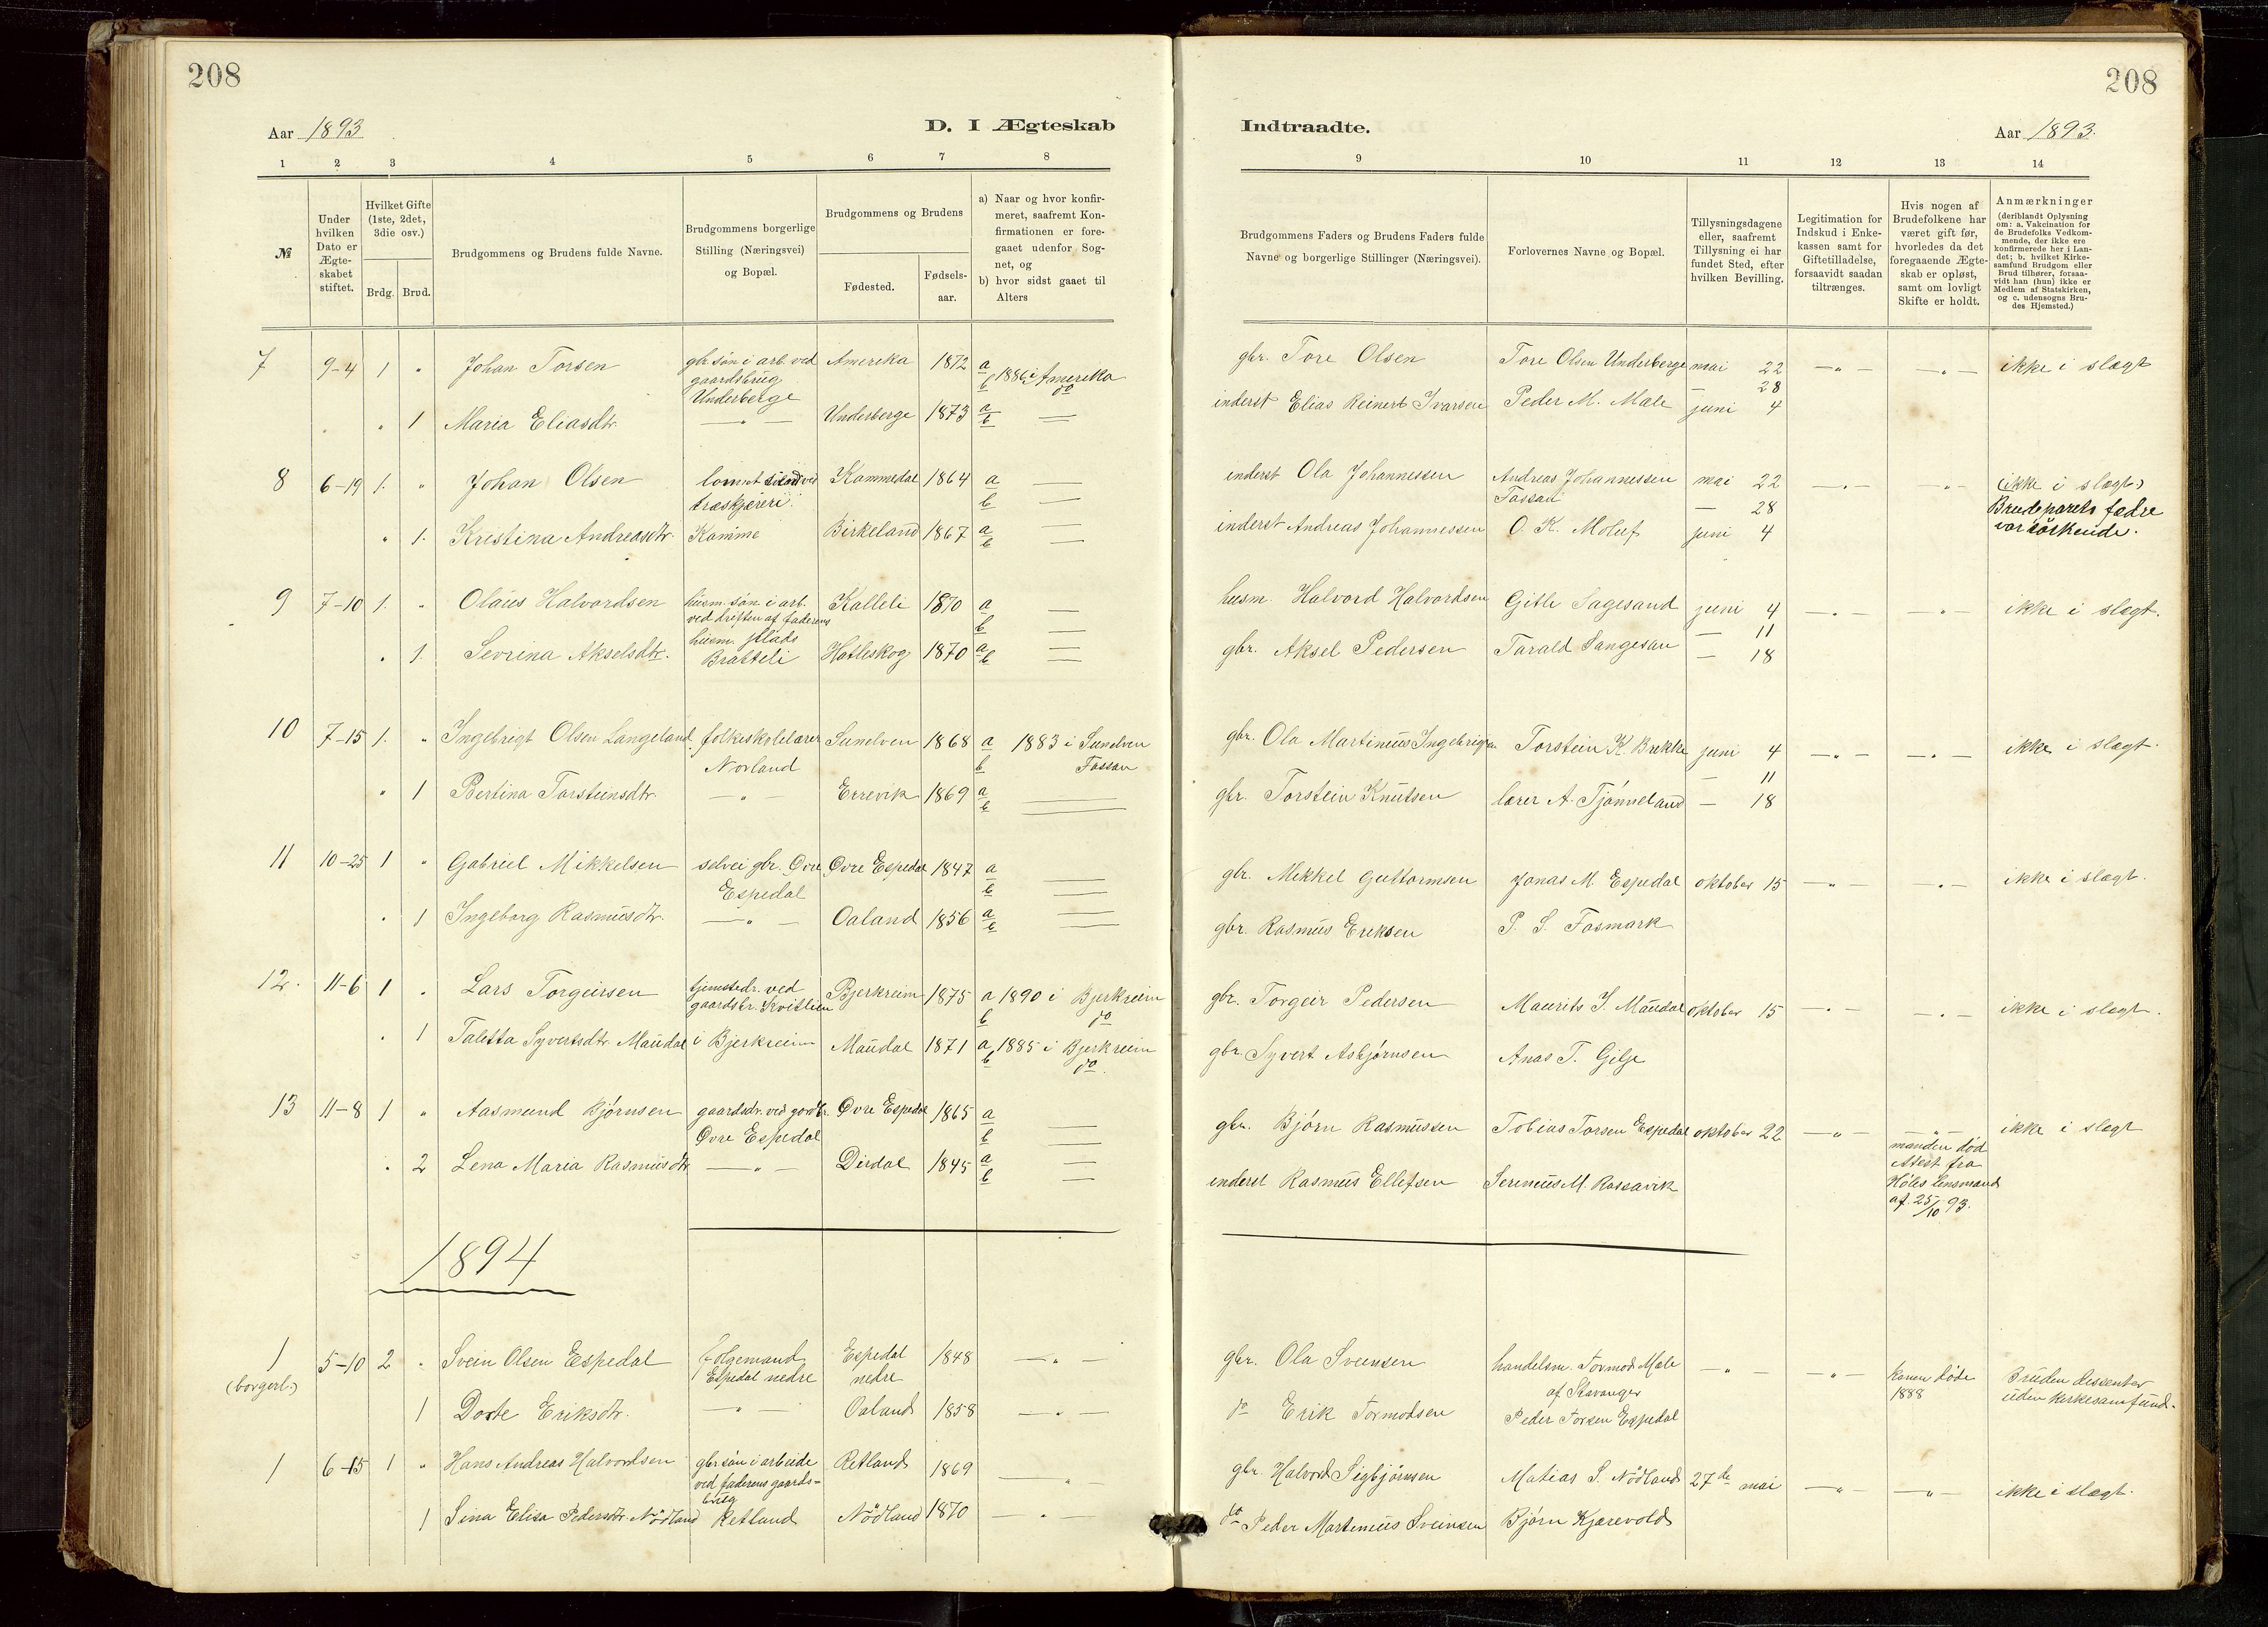 208
Aar 1893
D. I Ægteskab
1 2 3 4 5 6 7 8
№
Under hvilken Dato er Ægte-skabet stiftet.
Hvilket Gifte (1ste, 2det, 3die osv.)
Brdg. Brud.
Brudgommens og Brudens fulde Navne.
Brudgommens borgerlige Stilling (Næringsvei) og Bopæl.
Brudgommens og Brudens
Fødested.
Fødsels-aar.
a) Naar og hvor konfir-meret, saafremt Kon-firmationen er fore-gaaet udenfor Sog-net, og
b) hvor sidst gaaet til Alters
7 9-4 1 " Johan Torsen gbr. søn i arb. ved Amerika 1872 a 1886 i Amerika
gaardsbrug b do
Underberge
" 1 Maria Eliasdtr. — " — Underberge 1873 a b —
8 6-19 1. " Johan Olsen Kammedal 1864 a —
træskjæreri b —
" 1. Kristina Andreasdtr. Kamme Birkeland 1867 a b —
9 7-10 1. " Olaus Halvordsen husm. søn i arb. Kalleli 1870 a —
ved driften af faderens b —
husm. plads
" 1. Sevrina Akselsdtr. Bratteli Hatleskog 1870 a b —
10 7-15 1. " Ingebrigt Olsen Langeland folkeskolelærer Sunelven 1868 a 1883 i Sunelven
Norland b Fossan
" 1 Bertina Torsteinsdtr. — " — Errevik 1869 a b —
11 10-25 1 " Gabriel Mikkelsen selvei gbr. Øvre Øvre Espedal 1847 a —
Espedal b —
" 1 Ingeborg Rasmusdtr. — " — Oaland 1856 a b —
12. 11-6 1 " Lars Torgeirsen tjenstedr. ved Bjerkreim 1875 a 1890 i Bjerkreim
gaardsbr. Kvitlein b do
" 1 Taletta Syvertsdtr. Maudal i Bjerkreim Maudal 1871 a 1885 i Bjerkreim
b do
13 11-8 1 " Aasmund Bjørnsen gaardsdr. ved gardbr. Øvre Espedal 1865 a —
Øvre Espedal b —
" 2 Lena Maria Rasmusdtr — " — Dirdal 1845 a b —
1894
1 5-10 2 " Svein Olsen Espedal følgemand Espedal 1848 — " —
(borgerl.) Espedal nedre nedre
1 Dorte Eriksdtr. — " — Oaland 1858 — " —
1 6-15 1 " Hans Andreas Halvordsen gbr søn i arbeide Retland 1869 — " —
ved faderens gaards-
brug
1 Sina Elisa Pedersdtr. Nödland Retland Nödland 1870 — " —
208
Indtraadte.
Aar 1893.
9 10 11 12 13 14
Brudgommens Faders og Brudens Faders fulde Navne og borgerlige Stillinger (Næringsvei).
Forlovernes Navne og Bopæl.
Tillysningsdagene eller, saafremt Tillysning ei har fundet Sted, efter hvilken Bevilling.
Legitimation for Indskud i Enke-kassen samt for Giftetilladelse, forsaavidt saadan tiltrænges.
Hvis nogen af Brudefolkene har været gift før, hvorledes da det foregaaende Ægte-skab er opløst, samt om lovligt Skifte er holdt.
Anmærkninger (deriblandt Oplysning om: a. Vakcination for de Brudefolks Vedkom-mende, der ikke ere konfirmerede her i Lan-det; b. hvilket Kirke-samfund Brudgom eller Brud tilhører, forsaa-vidt han (hun) ikke er Medlem af Statskirken, og c. udensogns Bru-des Hjemsted.)
gbr. Tore Olsen Tore Olsen Underberge mai 22 — " — — " — ikke i slægt
— 28
inderst Elias Reinert Ivarsen Peder M. Male juni 4
inderst Ola Johannessen Andreas Johannessen mai 22 — " — — " — (ikke i slægt)
Fossan — 28 Brudeparets fædre
inderst Andreas Johannessen O. K. Moluf juni 4 var søskende.
husm. Halvord Halvordsen Gitle Sagesand juni 4 — " — — " — ikke i slægt.
— 11
gbr. Aksel Pedersen Tarald Sangesan — 18
gbr. Ola Martinus Ingebrigtsen Torstein K. Brekke juni 4 — " — — " — ikke i slægt.
— 11
gbr. Torstein Knutsen lærer A. Tjønneland — 18
gbr. Mikkel Guttormsen Jonas M. Espedal oktober 15 — " — — " — ikke i slægt.
gbr. Rasmus Eriksen P. S. Fosmark
gbr. Torgeir Pedersen Maurits S. Maudal oktober 15 — " — — " — ikke i slægt.
gbr. Syvert Asbjørnsen Anas T. Gilje
gbr. Bjørn Rasmussen Tobias Torsen Espedal oktober 22 — " — — " — ikke i slægt
manden død
Attest fra
inderst Rasmus Ellefsen Serenius M. Rossavik Høles lensmand
af 25/10 93.
gbr. Ola Sveinsen handelsm. Tormod Male — " — — " — konen døde Bruden dissenter
af Stavanger 1888 uden kirkesamfund.
do Erik Tormodsen Peder Torsen Espedal
gbr. Halvord Sigbjørnsen Matias S. Nödland 27de mai — " — — " — ikke i slægt.
do Peder Martinius Sveinsen Bjørn Kjærevold